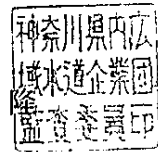 神奈川県内広
域水道企業団
監査委員印
隆